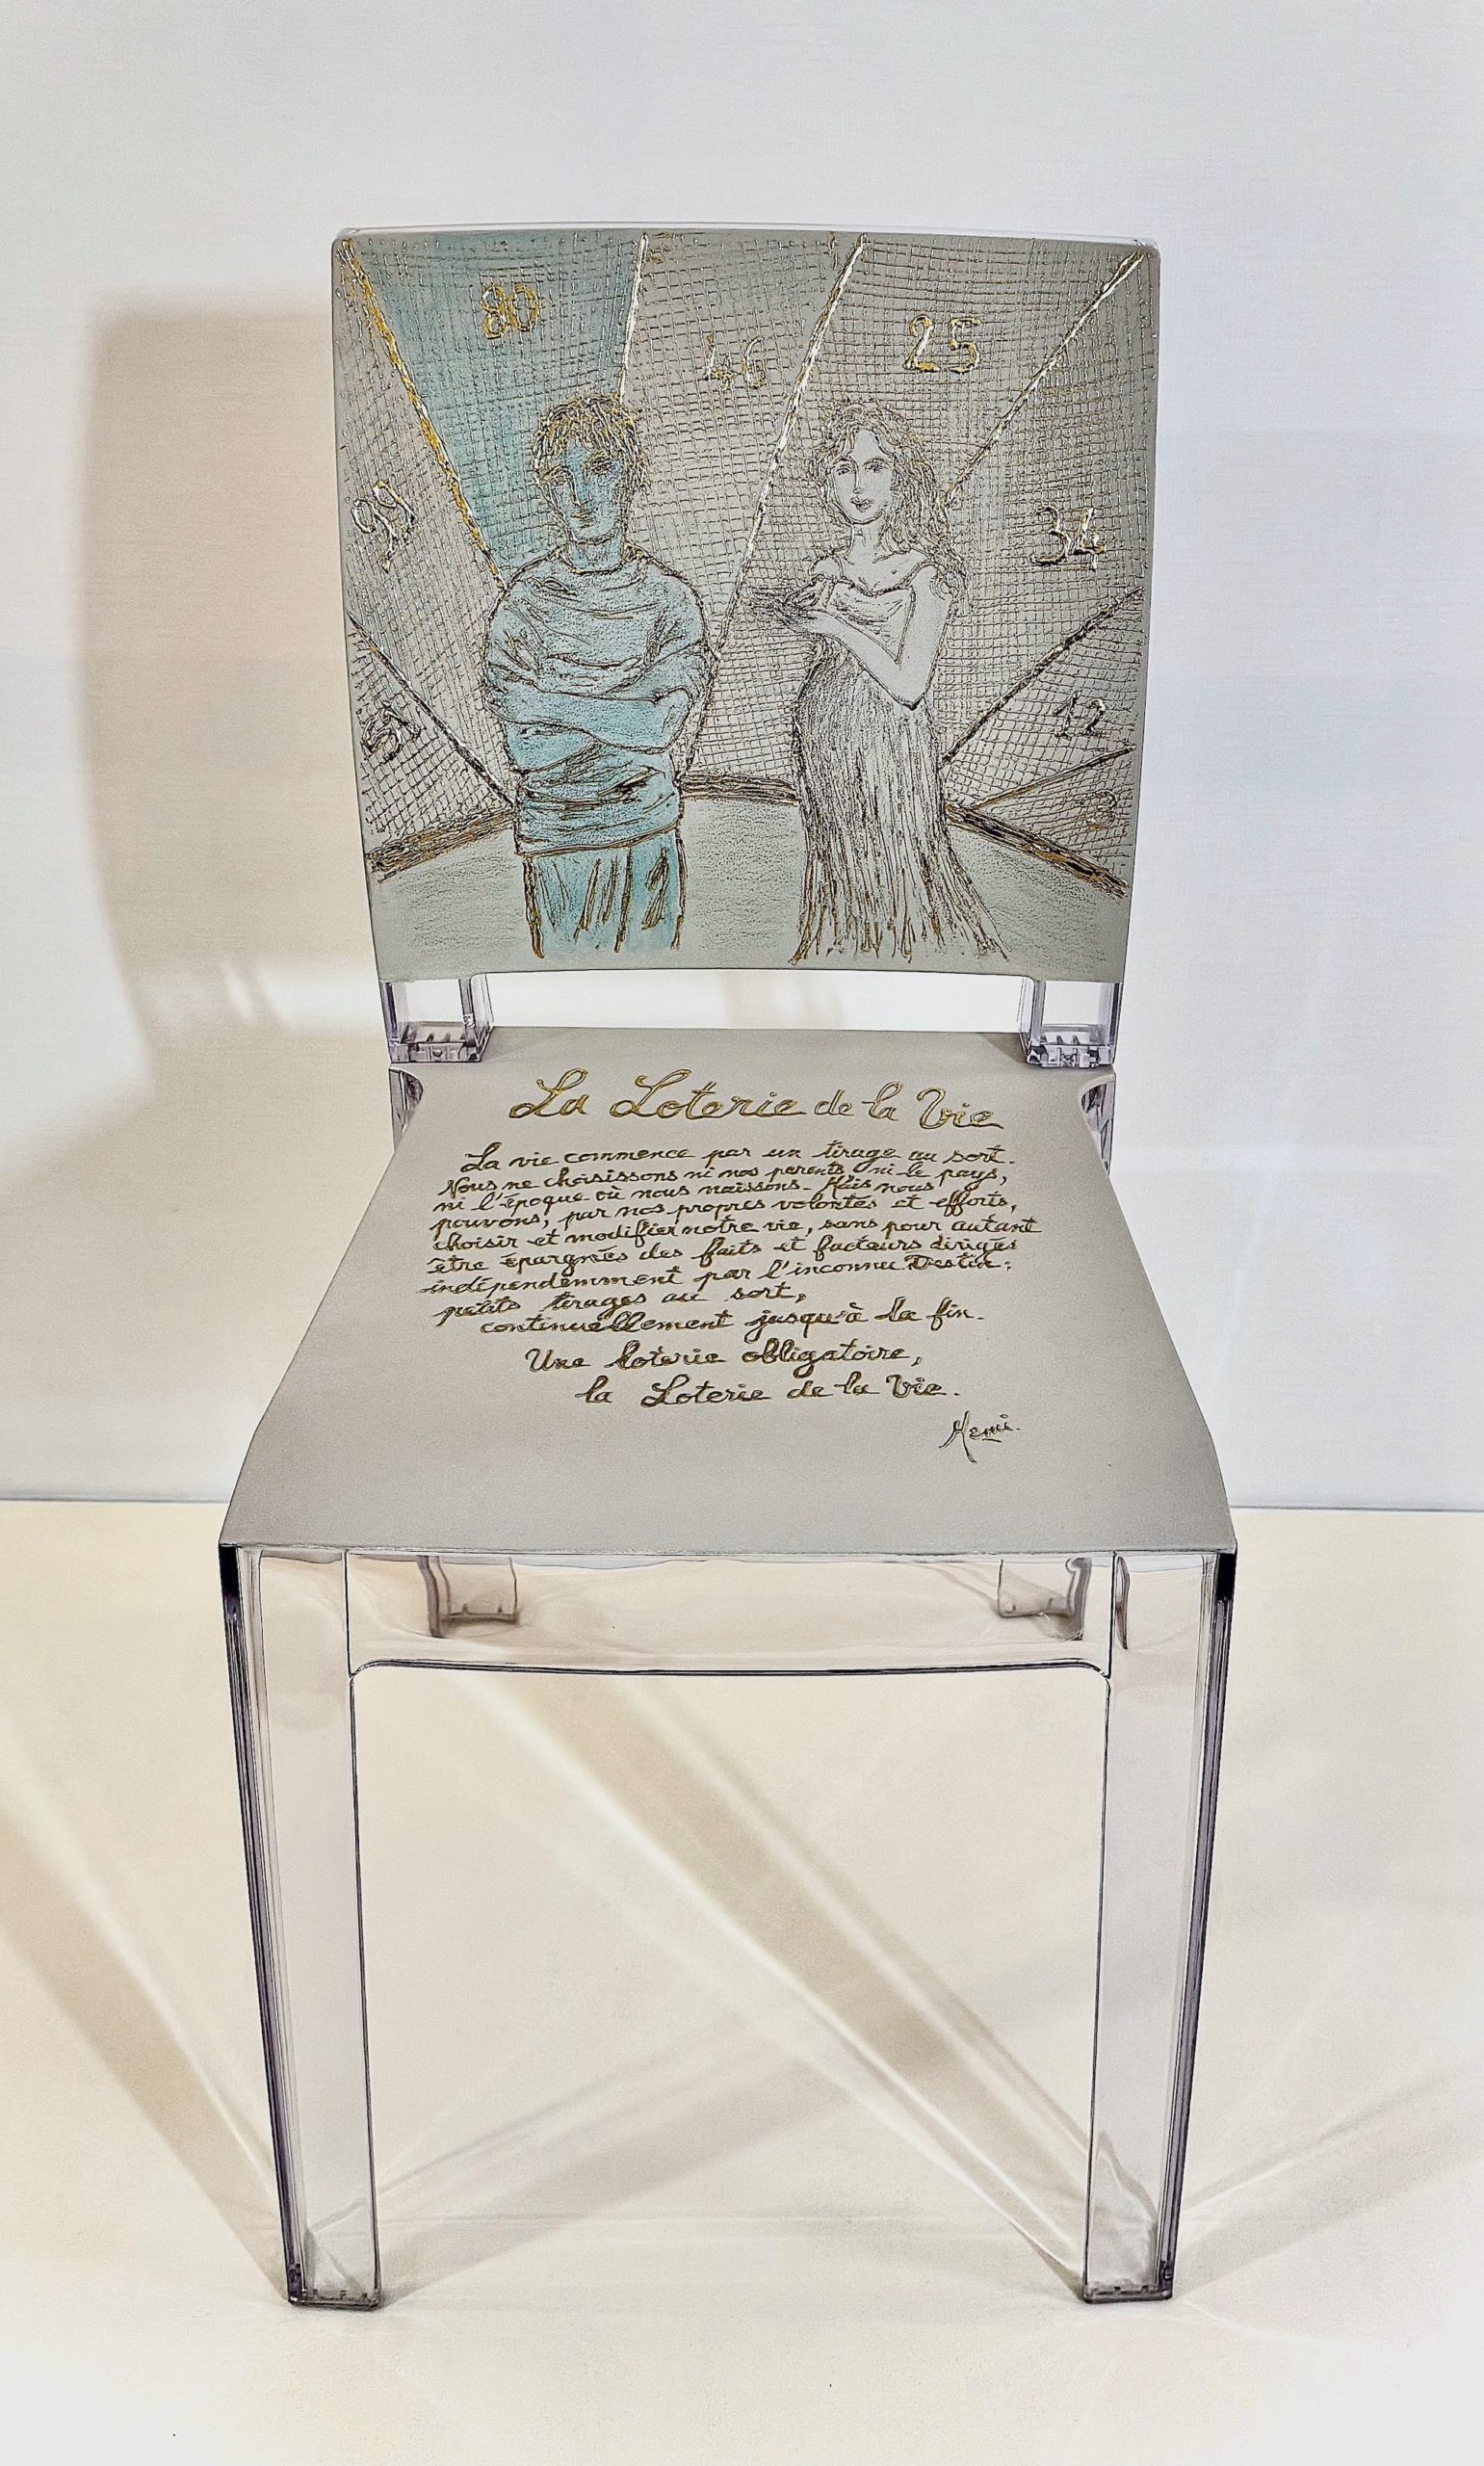 80
46
25
99
34
51
12
8
La Loterie de la Vie
La vie commence par un tirage au sort.
Nous ne choisissons ni nos parents, ni le pays,
ni l'époque où nous naissons. Mais nous
pouvons, par nos propres volontés et efforts,
choisir et modifier notre vie, sans pour autant
être épargnés des faits et facteurs dirigés
indépendemment par l'inconnu Destin;
petits tirages au sort,
continuellement jusqu'à la fin.
Une loterie obligatoire,
la Loterie de la Vie.